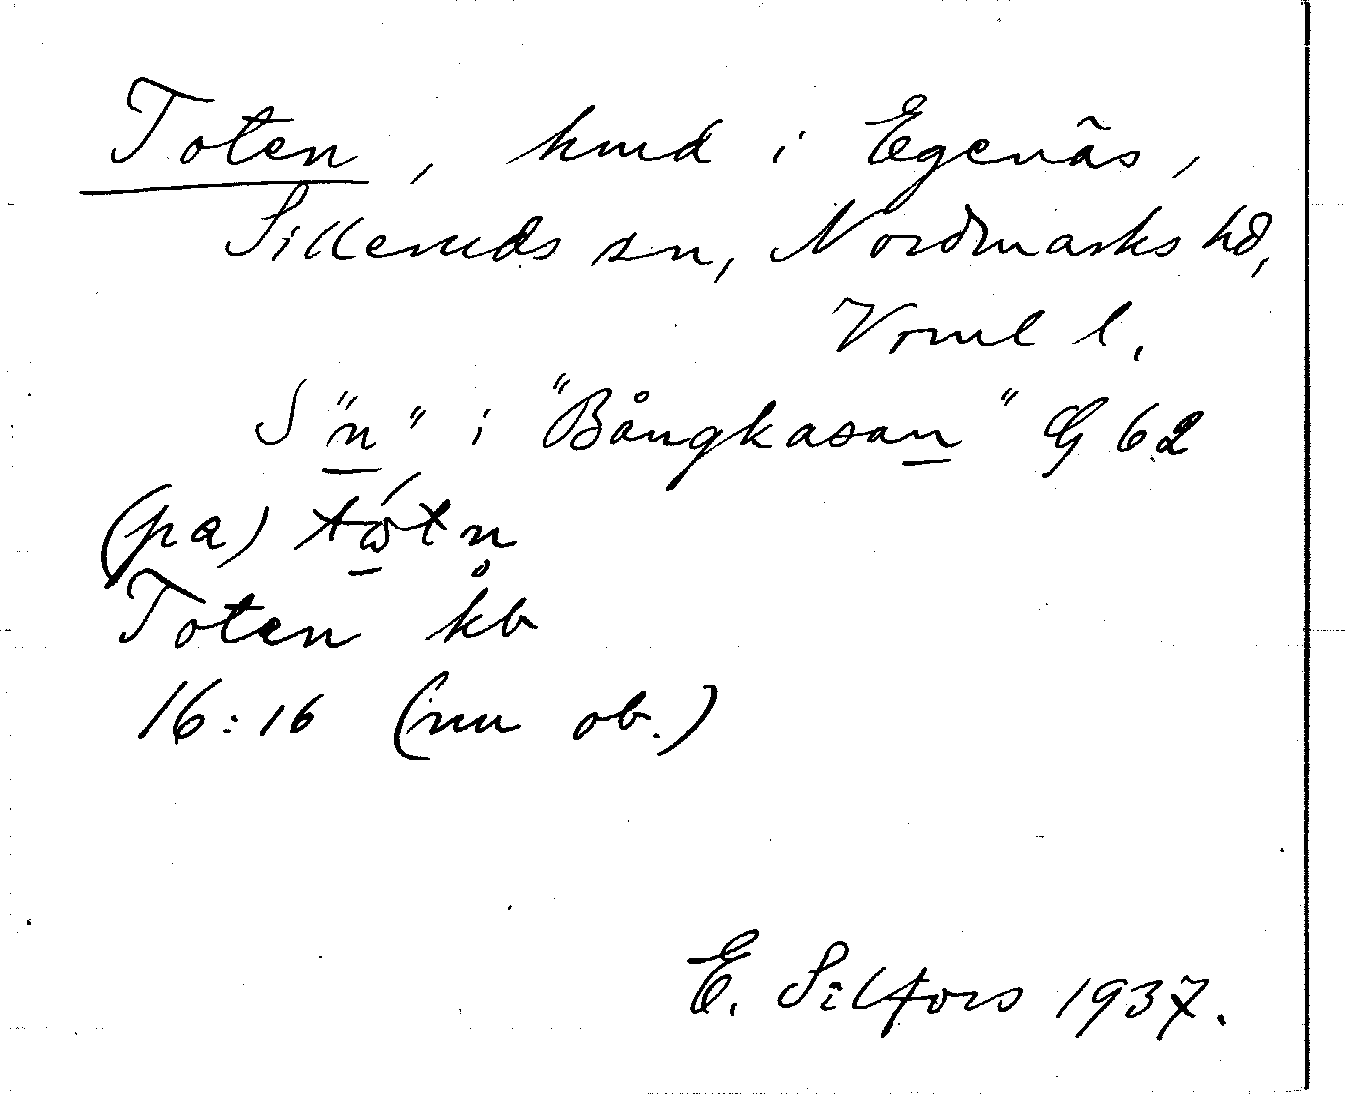 Toten, hmd i Egenäs,
Silleruds sn, Nordmarks hd,
Vrml l.
S "n" i "Bångkasan" G 62
(pa) tώtn
Toten kb
16:16 (nu ob.)
E. Selfors 1937.